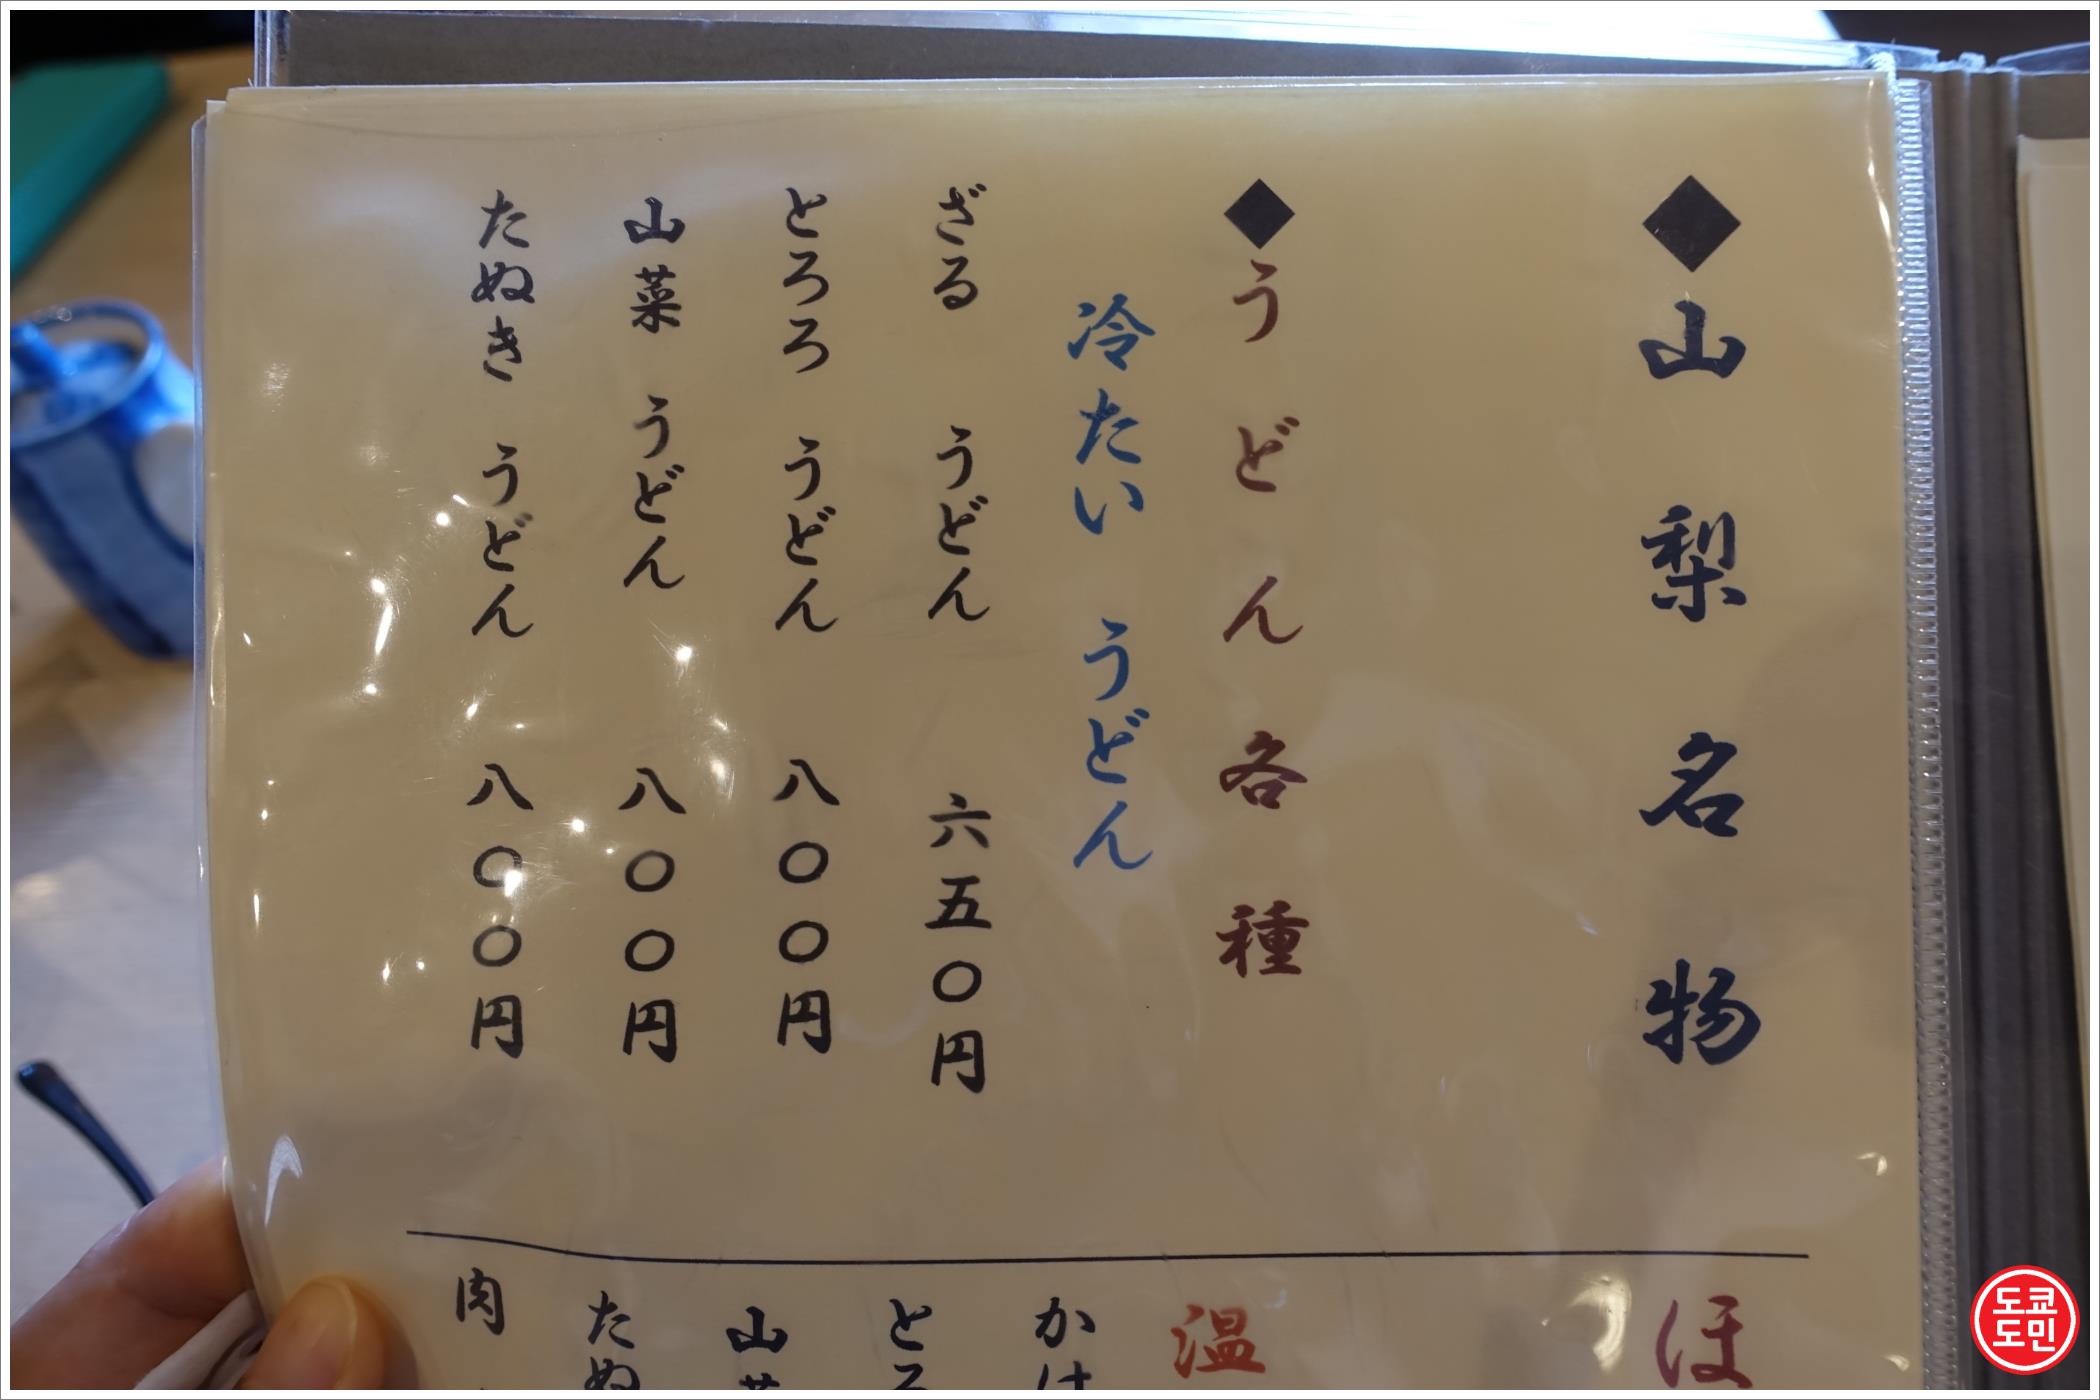 ◆山梨名物
◆うどん各種
冷たい うどん
ざる うどん 六五〇円
とろろ うどん 八〇〇円
山菜 うどん 八〇〇円
たぬき うどん 八〇〇円
ほ
温
かけ
とろ
山菜
たぬ
肉
도쿄
도민